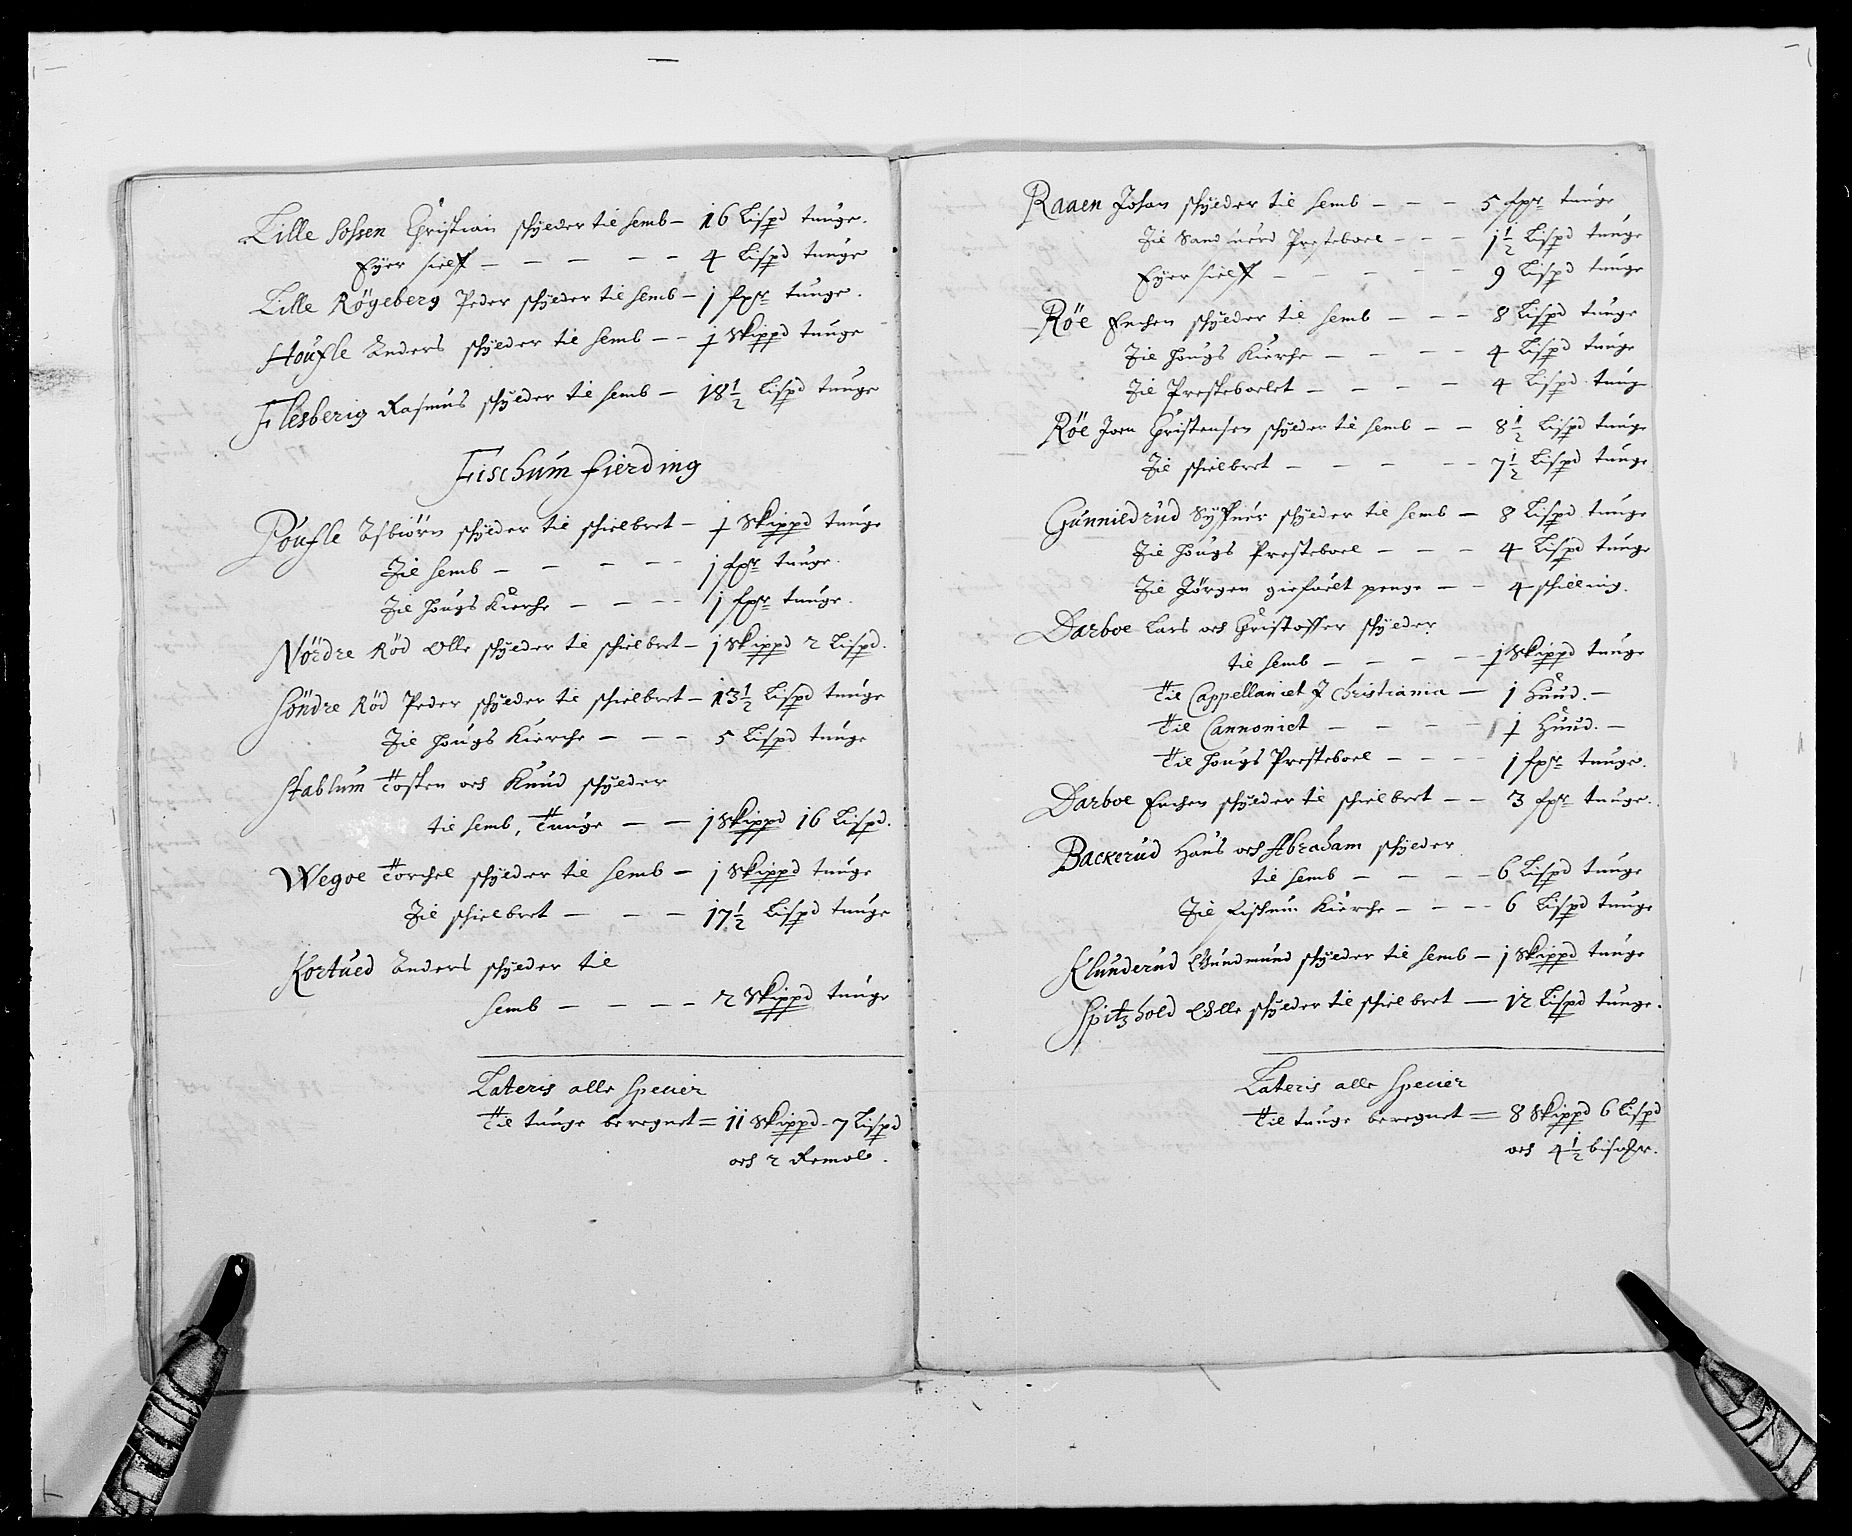 Lille Sossen Christian schylder til Semb – 16 Lispd tunge.
Eyer sielff – – – – – – 4 Lispd tunge
Lille Rögeberg Peder schylder til Semb – 1 fpr tunge.
Houfle Anders schylder til Semb – – 1 Skippd tunge
Flesberig Rasmus schylder til Semb – 18½ Lispd tunge
Fischum fierding
Poufle Asbiörn schylder til schielbret – 1 Skippd tunge
Til Semb – – – – – 1 fpr tunge.
Til Hougs Kierche – – – – 1 fpr tunge.
Nördre Röd Olle schylder til schielbret – 1 Skippd 2 Lispd.
Söndre Röd Peder schylder til schielbret – 13½ Lispd tunge
Til Hougs Kierche – – – 5 Lispd tunge
Stablum Tosten och Knud schylder
til Semb, Tunge – – 1 Skippd 16 Lispd.
Wegoe Torchel schylder til Semb – 1 Skippd tunge
Til schielbret – – – 17½ Lispd tunge
Kortued Anders schylder til
Semb – – – – 2 Skippd tunge
Lateris alle Specier
Til tunge beregnet = 11 Skippd – 7 Lispd
och 2 Remol.
Raaen Johan schylder til Semb – – – 5 fpr tunge
Til Sandsuerd Presteboel – – – 1½ Lispd tunge
Eyer sielff – – – – – 9 Lispd tunge
Röe Enchen schylder til Semb – – – 8 Lispd tunge
Til Hougs Kierche – – – – 4 Lispd tunge
Til Presteboelet – – – – 4 Lispd tunge
Röe Joen Christensen schylder til Semb – – 8½ Lispd tunge
Til schielbret – – – – – 7½ Lispd tunge
Gunnildrud Syffuer schylder til Semb – 8 Lispd tunge
Til Hougs Presteboel – – – 4 Lispd tunge
Til Jörgen giefuelt penge – – 4 schilling.
Darboe Lars och Christoffer schylder
til Semb – – – – – 1 Skippd tunge
Til Cappellaniet J Christiania – 1 Huud. –
Til Cannoniet – – – – 1 Huud. –
Til Hougs Presteboel – – – – 1 fpr tunge.
Darboe Enchen schylder til schielbret – – 3 fpr tunge.
Backerud Hans och Abraham schylder
til Semb – – – – 6 Lispd tunge
Til Fischum Kierche – – – – 6 Lispd tunge
Klunderud Gundmund schylder til Semb – 1 Skippd tunge
Spitzhold Olle schylder til schielbret – 12 Lispd tunge.
Lateris alle Specier
Til tunge beregnet = 8 Skippd 6 Lispd
och 4½ bismer.